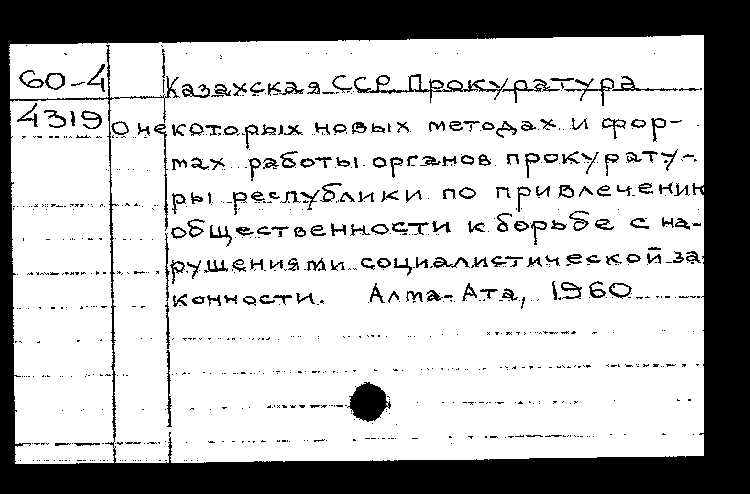 60-4 Казахская ССР Прокуратура
4319 О некоторых новых методах и фор-
мах работы органов прокурату-
ры республики по привлечению
общественности к борьбе с на-
рушениями социалистической за
конности. Алма-Ата, 1960